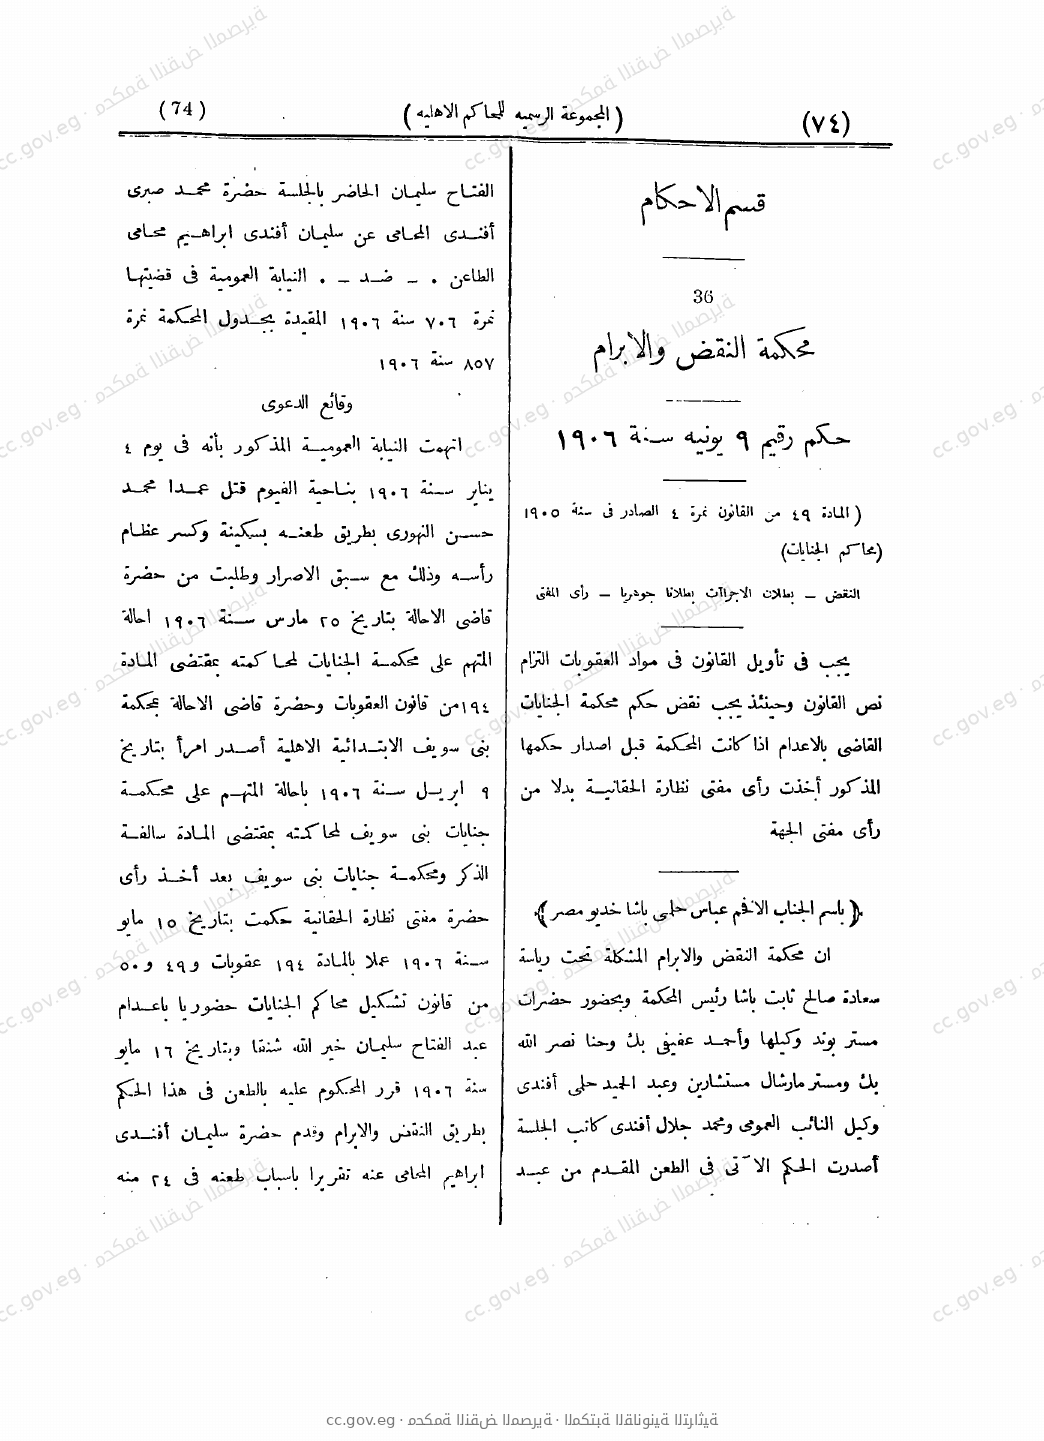 (٧٤)
(المجموعة الرسميه للمحاكم الاهليه)
(74)
قسم الاحكام
36
محكمة النقض والابرام
حكم رقيم ٩ يونيه سنة ١٩٠٦
(المادة ٤٩ من القانون نمرة ٤ الصادر فى سنة ١٩٠٥
(محاكم الجنايات)
النقض – بطلان الاجراآت بطلانا جوهريا – رأى المفتى
يجب فى تأويل القانون فى مواد العقوبات التزام
نص القانون وحينئذ يجب نقض حكم محكمة الجنايات
القاضى بالاعدام اذا كانت المحكمة قبل اصدار حكمها
المذكور أخذت رأى مفتى نظارة الحقانيــة بدلا من
رأى مفتى الجهة
﴿باسم الجناب الافخم عباس حلمى باشا خديو مصر﴾
ان محكمة النقض والابرام المشكلة تحت رياسة
سعادة صالح ثابت باشا رئيس المحكمة وبحضور حضرات
مستر بوند وكيلها وأحمــد عفيفى بك وحنا نصر الله
بك ومستر مارشال مستشارين وعبد المجيد حلمى أفندى
وكيل النائب العمومى ومحمد جلال أفندى كاتب الجلسة
أصدرت الحكم الآتى فى الطعن المقــدم من عبــد
الفتــاح سليمــان الحاضر بالجلسة حضرة محمــد صبرى
أفنــدى المحــامى عن سليمان أفندى ابراهــيم محــامى
الطاعن . – ضــد – . النيابة العمومية فى قضيتهــا
نمرة ٧٠٦ سنة ١٩٠٦ المقيدة بجــدول المحكمة نمرة
٨٥٧ سنة ١٩٠٦
وقائع الدعوى
اتهمت النيابة العموميــة المذكور بأنه فى يوم ٤
يناير ســنة ١٩٠٦ بنــاحية الفيوم قتل عمــدا محمــد
حســن النهورى بطريق طعنــه بسكينة وكسر عظــام
رأســه وذلك مع ســبق الاصرار وطلبت من حضرة
قاضى الاحالة بتاريخ ٢٥ مارس ســنة ١٩٠٦ احالة
المتهم على محكمــة الجنايات لمحاكمته بمقتضى المــادة
١٩٤من قانون العقوبات وحضرة قاضى الاحالة بمحكمة
بنى سويف الابتــدائية الاهلية أصــدر امرأ بتاريخ
٩ ابريــل ســنة ١٩٠٦ باحالة المتهــم على محكمــة
جنايات بنى سويف لمحاكمته بمقتضى المــادة سالفــة
الذكر ومحكمــة جنايات بنى سويف بعد أخــذ رأى
حضرة مفتى نظارة الحقانية حكمت بتاريخ ١٥ مايو
ســنة ١٩٠٦ عملا بالمــادة ١٩٤ عقوبات و٤٩ و٥٠
من قانون تشكيل محاكم الجنايات حضوريا باعــدام
عبد الفتاح سليمان خير الله شنقا وبتاريخ ١٦ مايو
سنة ١٩٠٦ قرر المحكوم عليه بالطعن فى هذا الحكم
بطريق النقض والابرام وقدم حضرة سليمــان أفنــدى
ابراهيم المحامى عنه تقريرا باسباب طعنه فى ٢٤ منه
cc.gov.eg · محكمة النقض المصرية · المكتبة القانونية التراثية